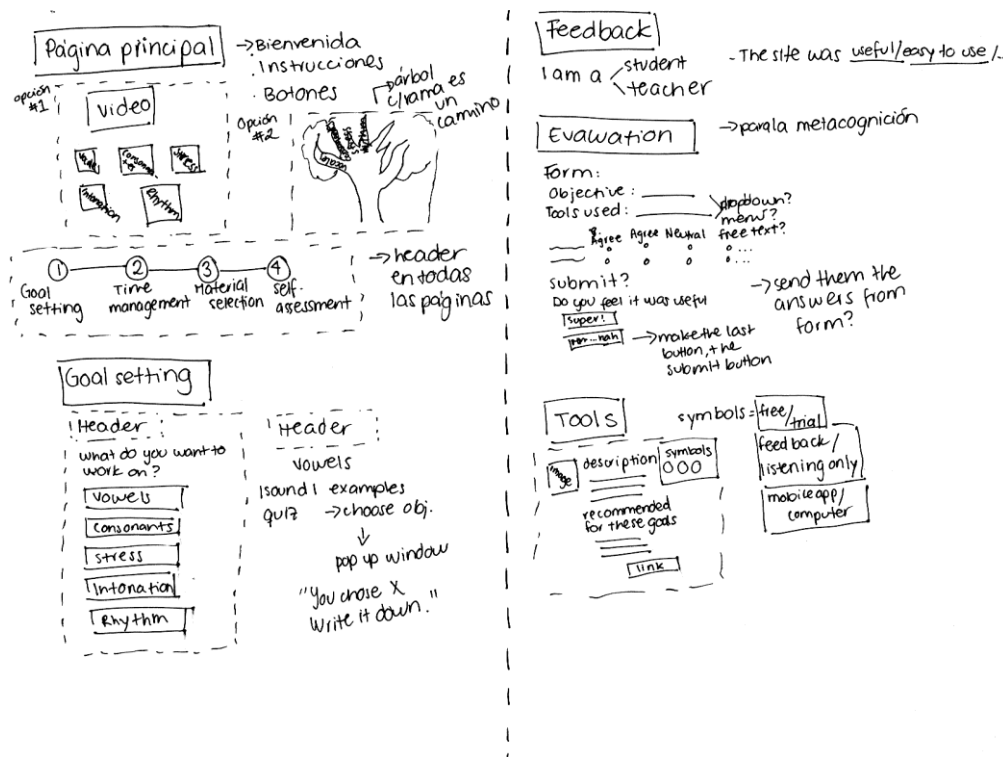 Página principal
→ Bienvenida
· Instrucciones
· Botones
opción #1
video
vowels
consonants
stress
Intonation
Rhythm
opción #2
árbol
c/rama es
un
camino
1 2 3 4
Goal setting
Time management
Material selection
self-assessment
→ header
en todas
las páginas
Goal setting
Header
what do you want to
work on?
vowels
consonants
stress
Intonation
Rhythm
Header
vowels
1sound1 examples
quiz → choose obj.
↓
pop up window
"You chose X
Write it down."
Feedback
I am a < student
teacher
- The site was useful/easy to use/...
Evaluation
→ para la metacognición
Form:
Objective:
Tools used:
dropdown?
menu?
free text?
Agree Agree Neutral
...
...
submit?
Do you feel it was useful
super!
→ make the last
button, the
submit button
→ send them the
answers from
form?
TOOLS
image
description
symbols
OOO
recommended
for these goals
link
symbols = free/
trial
feedback/
listening only
mobile app/
computer